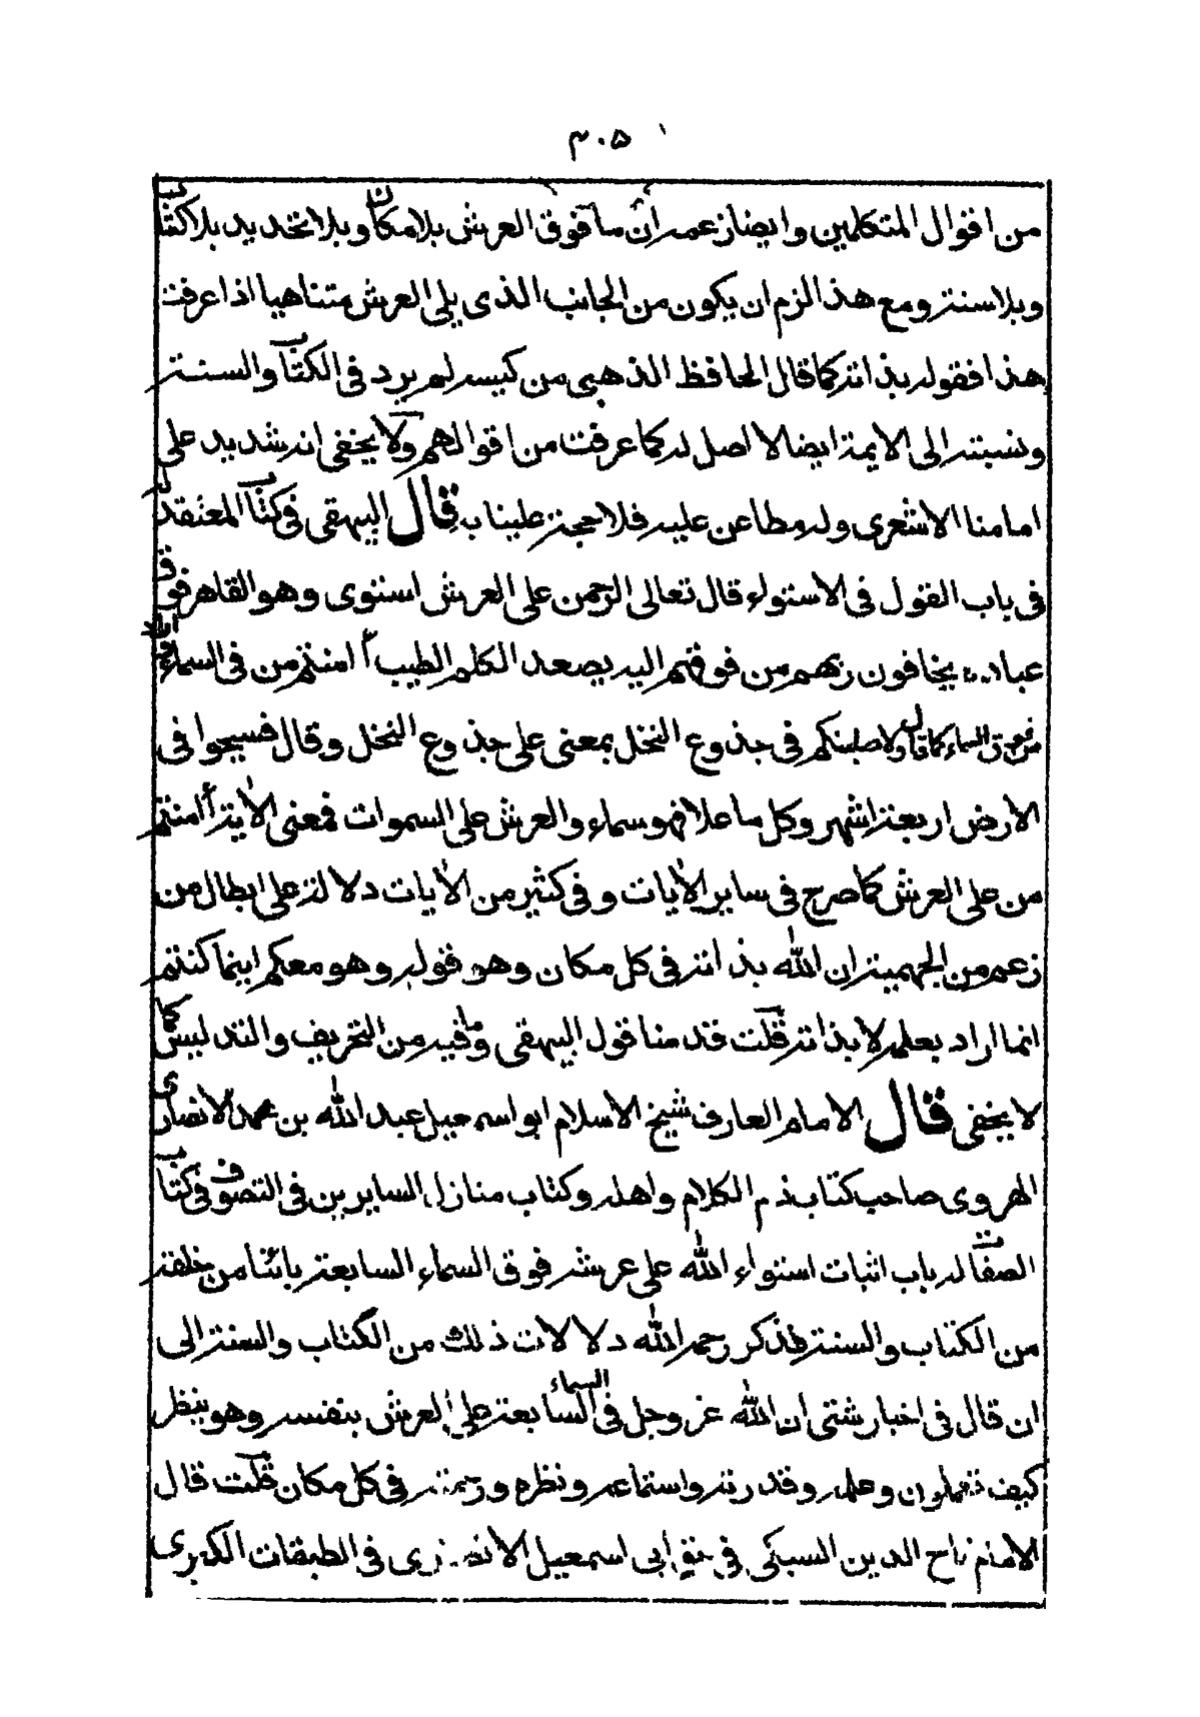 ٣٠٥
من اقوال المتكلمين وايضا زعمه ان ما فوق العرش بلا مكان وبلا تحديد بلا كتاب
وبلا سنة ومع هذا لزم ان يكون من الجانب الذي يلي العرش متناهيا اذا عرفت
هذا فقوله بذاته كما قال الحافظ الذهبي من كيسه لم يرد في الكتاب والسنة
ونسبته الى الايمة ايضا لا اصل له كما عرفت من اقوالهم ولا يخفى انه شديد على
امامنا الاشعري وله مطاعن عليه فلا حجة علينا به قال البيهقي في كتاب المعتقد له
في باب القول في الاستواء قال تعالى الرحمن على العرش استوى وهو القاهر فوق
عباده يخافون ربهم من فوقهم اليه يصعد الكلم الطيب أامنتم من في السماء اراد
من فوق السماء كما قال ولاصلبنكم في جذوع النخل بمعنى على جذوع النخل وقال فسيحوا في
الارض اربعة اشهر وكل ما علا فهو سماء والعرش على السموات فمعنى الاية أامنتم
من على العرش كما صرح في ساير الايات وفي كثير من الايات دلالة على ابطال من
زعم من الجهمية ان الله بذاته في كل مكان وهو قوله وهو معكم اينما كنتم
انما اراد بعلمه لا بذاته قلت قدمنا قول البيهقي وما فيه من التحريف والتدليس كما
لا يخفى قال الامام العارف شيخ الاسلام ابو اسمعيل عبد الله بن محمد الانصاري
الهروي صاحب كتاب ذم الكلام واهله وكتاب منازل السايرين في التصوف في كتاب
الصفات له باب اثبات استواء الله على عرشه فوق السماء السابعة بائنا من خلقه
من الكتاب والسنة فذكر رحمه الله دلالات ذلك من الكتاب والسنة الى
ان قال في اخبار شتى ان الله عز وجل في السماء السابعة على العرش بنفسه وهو ينظر
كيف تعملون وعلمه وقدرته واستماعه ونظره ورحمته في كل مكان قلت قال
الامام تاج الدين السبكي في ابي اسمعيل الانصاري في الطبقات الكبرى